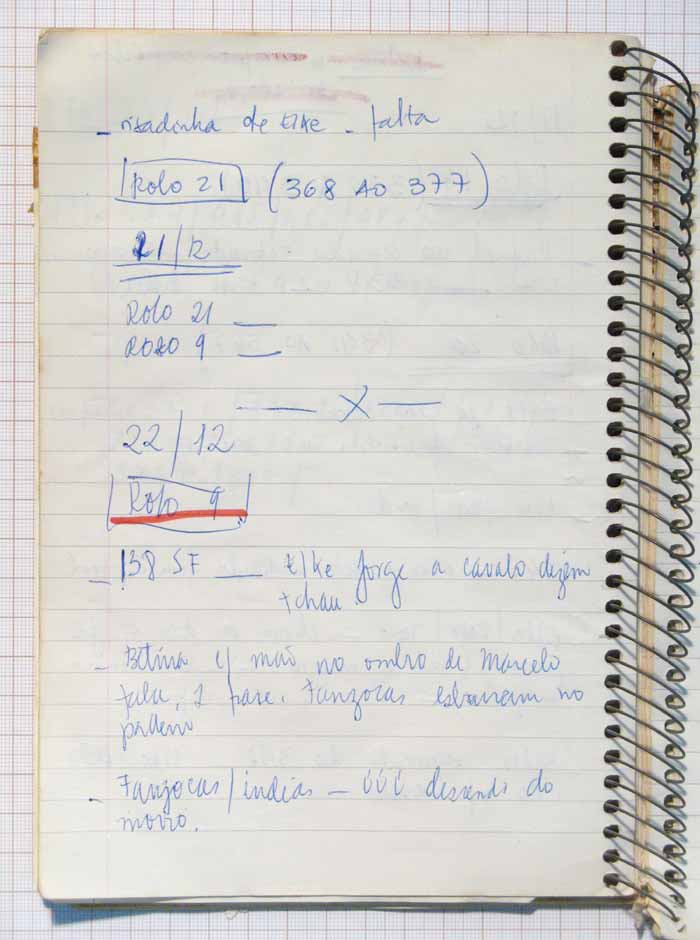 - risadinha de Elke - falta
Rolo 21 (368 AO 377)
21/12
Rolo 21 —
ROLO 9 —
— X —
22/12
Rolo 9
- 138 SF — Elke Jorge a cavalo dizem
tchau.
- Betina c/ mão no ombro de Marcelo
fala, Tanzocas no
- Tanzocas/índias — úúú do
morro.